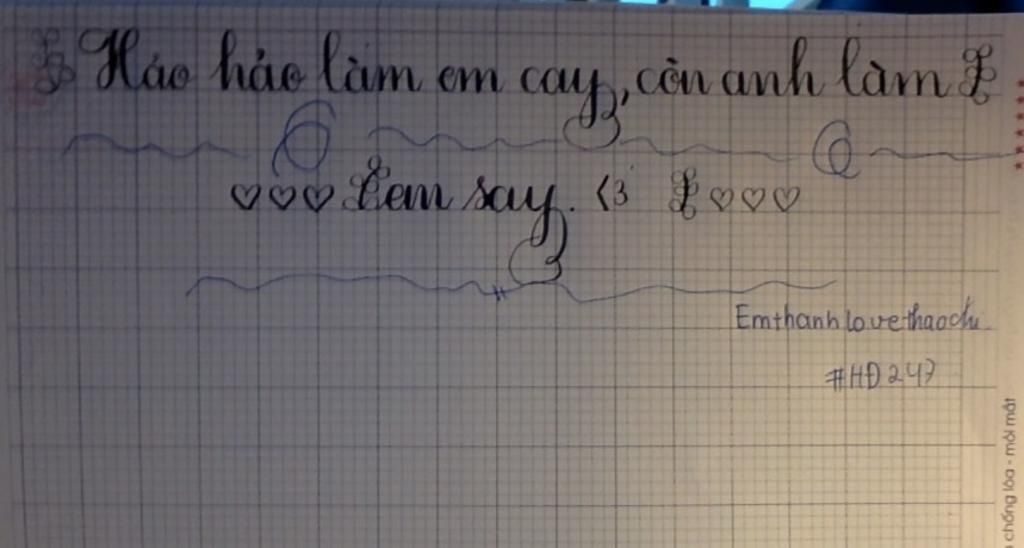 Hảo hảo làm em cay, còn anh làm
♡♡♡ Em say. <3 ♡♡♡
Emthanhlovethaochi
#HĐ247
chống lóa - mỏi mắt